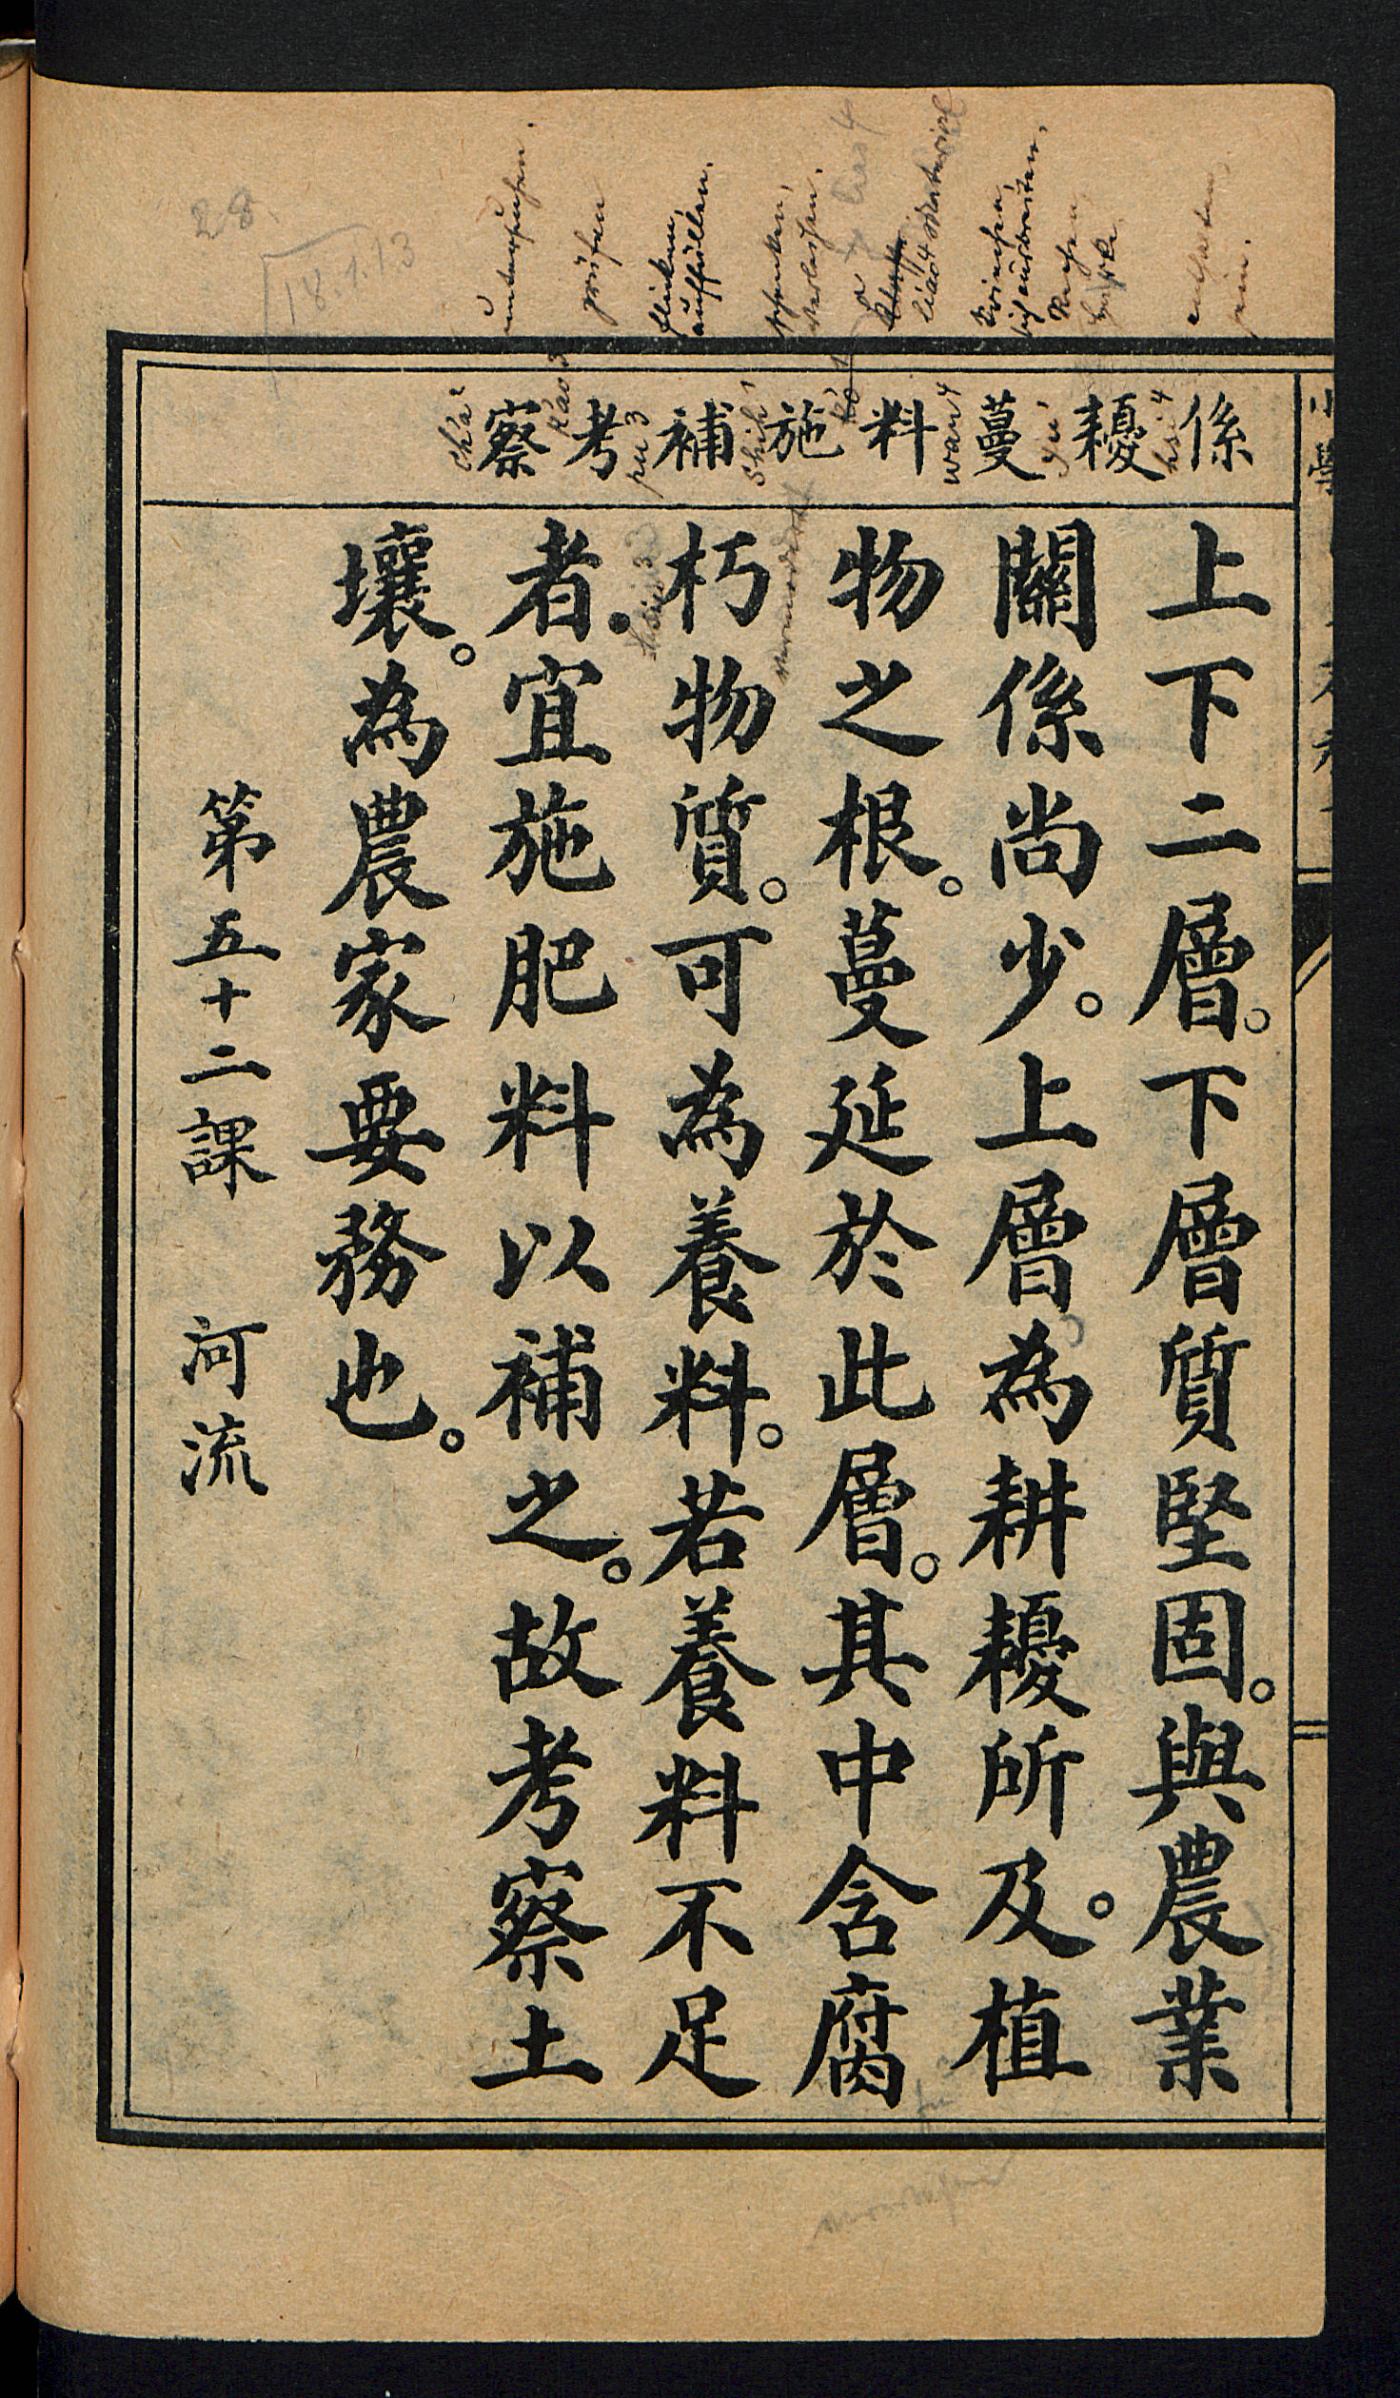 係 耰 蔓 料 施 補 考 察
上下二層。下層質堅固。與農業
關係尚少。上層為耕耰所及。植
物之根。蔓延於此層。其中含腐
朽物質。可為養料。若養料不足
者。宜施肥料以補之。故考察土
壤。為農家要務也。
第五十二課 河流
hsi4
yu1
wan4
liao4
shih1
pu3
k'ao3
ch'a2
prüfen
flicken,
auffüllen.
28.
18.1.13